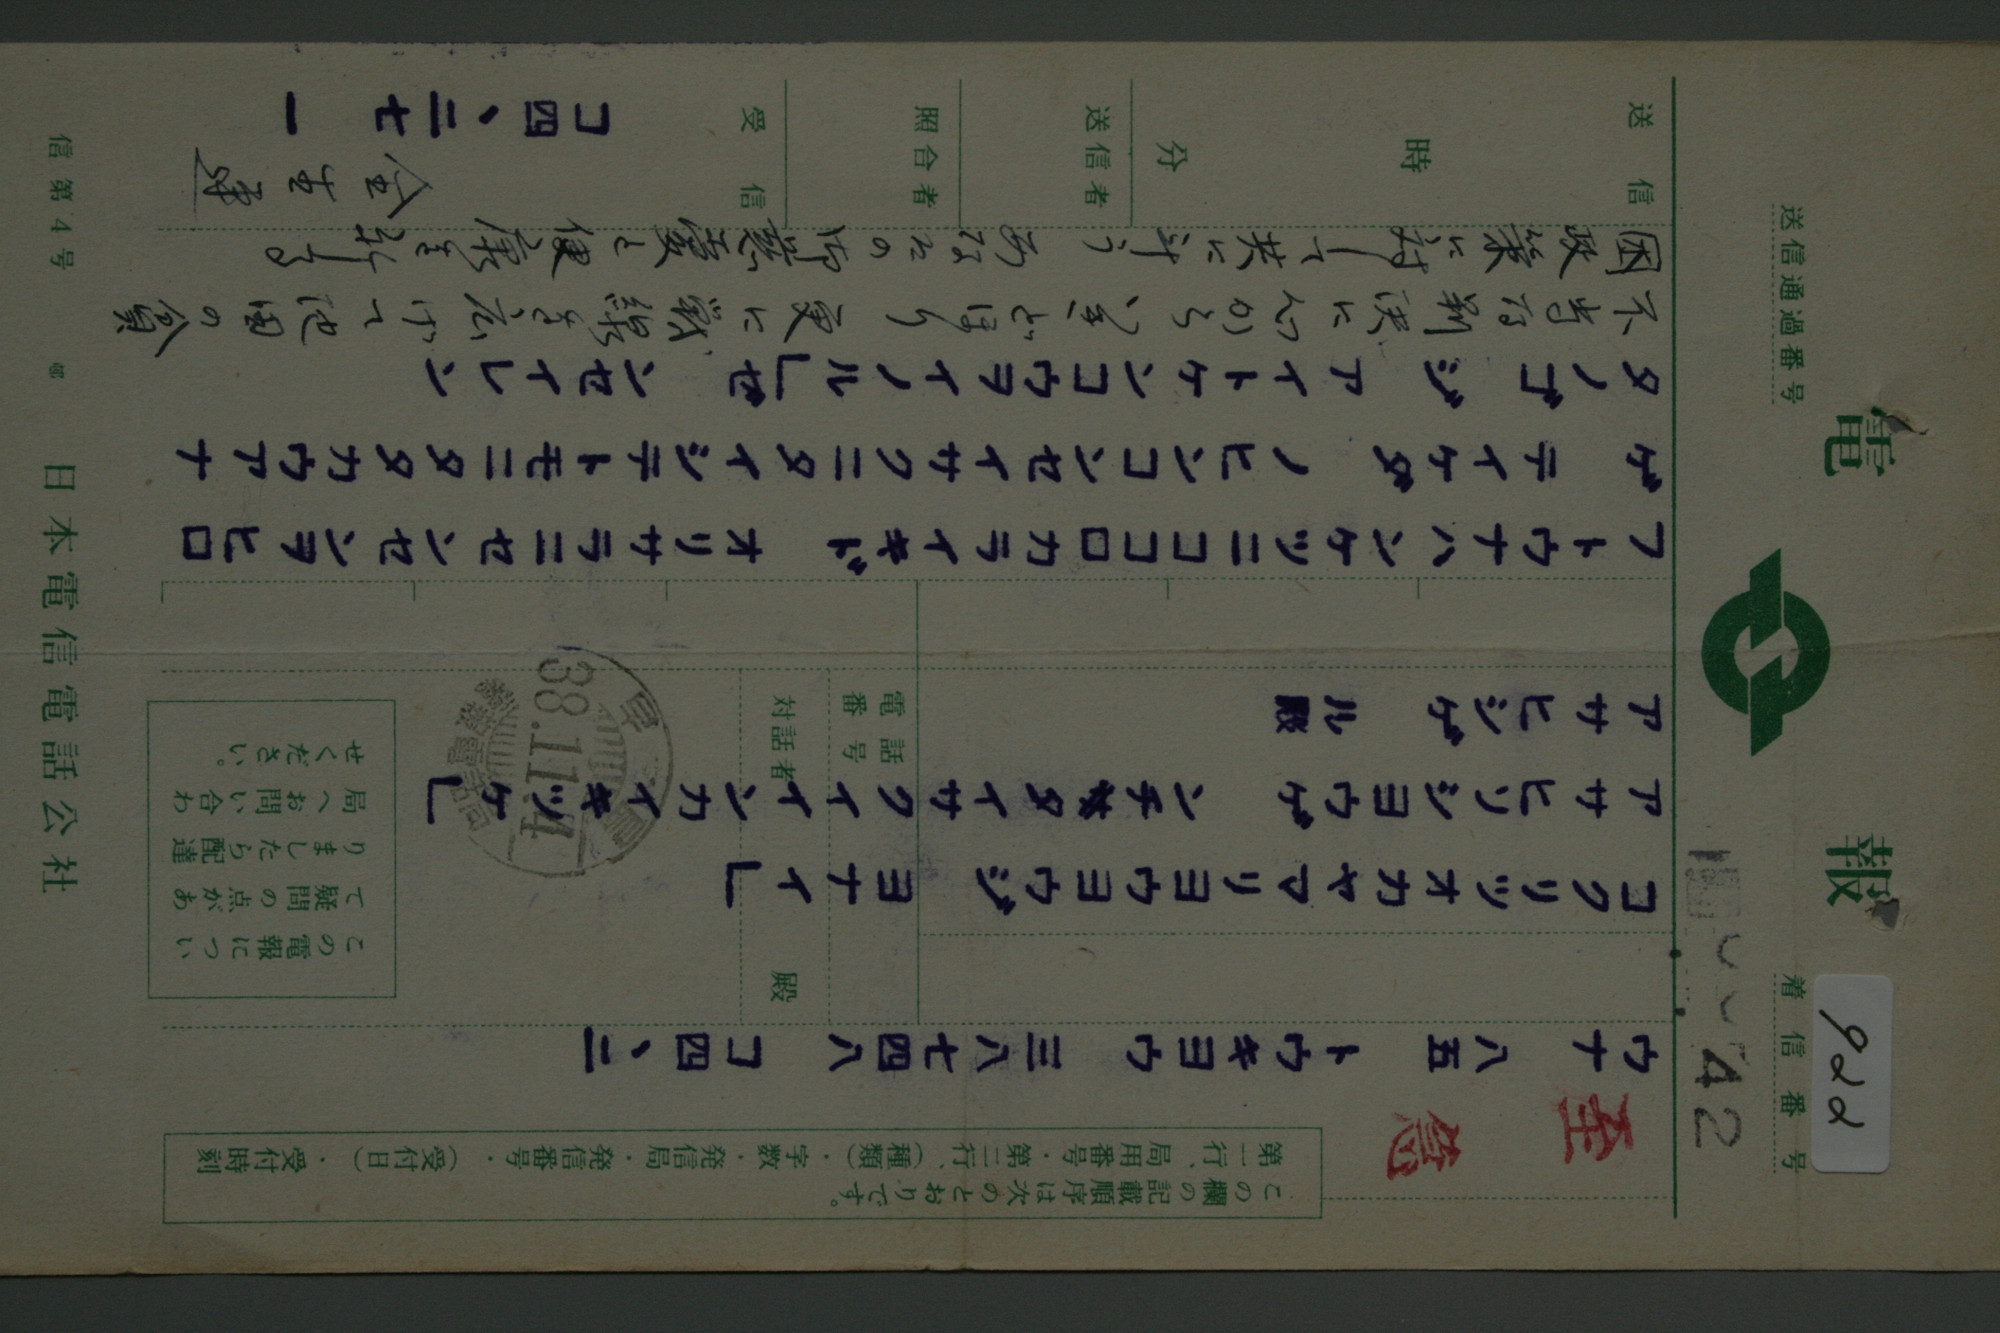 電報
送信通過番号
着信番号
922
42
この欄の記載順序は次のとおりです。
第一行、局用番号・第二行、(種類)・字数・発信局・発信番号・(受付日)・受付時刻
至急
ウナ 八五 トウキヨウ 三八七四八 コ四、二
コクリツオカヤマリヨウヨウジヨナイ」
アサヒソシヨウゲンチタイサクイインカイキツケ」
アサヒシゲル殿
電話番号
対話者
殿
38.11.4
この電報につい
て疑問の点があ
りましたら配達
局へお問い合わ
せください。
フトウナハンケツニココロカライキドオリサラニセンセンヲヒロ
ゲテイケダノヒンコンセイサクニタイシテトモニタタカウアナ
タノゴジアイトケンコウヲイノル」ゼンセイレン
不当な判決に心から憤どほり更に戦線を広げて池田の貧
困政策に対して共に斗うあなたの御慈愛と健康を祈る
全生連
送信
時
分
送信者
照合者
受信
コ四、二七 一
信第4号
日本電信電話公社